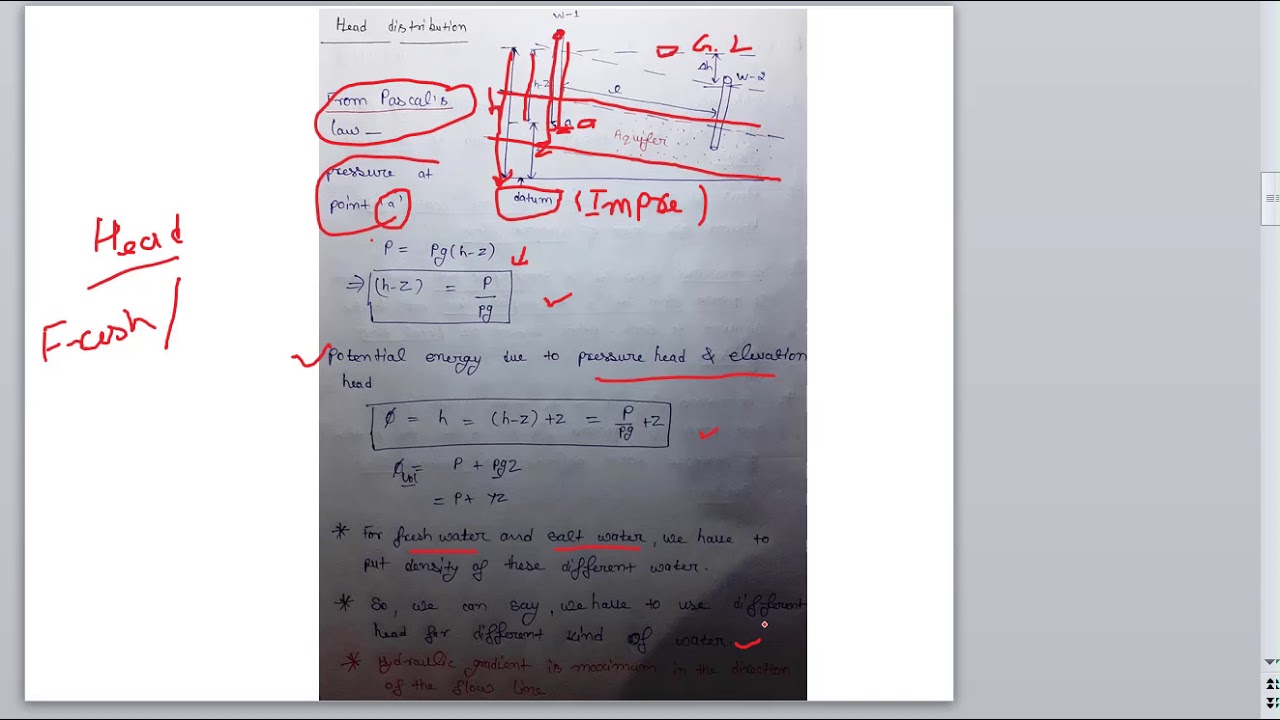 Head distribution
W-1
G.L
Δh
W-2
h-z
l
h
From Pascal's
law -
a
a
z
Aquifer
pressure at
point 'a'
datum
(Impre)
Head
Fresh /
P = ρg(h-z)
⇒ (h-z) = P/ρg
Potential energy due to pressure head & elevation
head
ϕ = h = (h-z)+z = P/ρg +z
ϕvol = P + ρgz
= P+ γz
* For fresh water and salt water, we have to
put density of these different water.
* So, we can say, we have to use different
head for different kind of water.
* Hydraulic gradient is maximum in the direction
of the flow line.